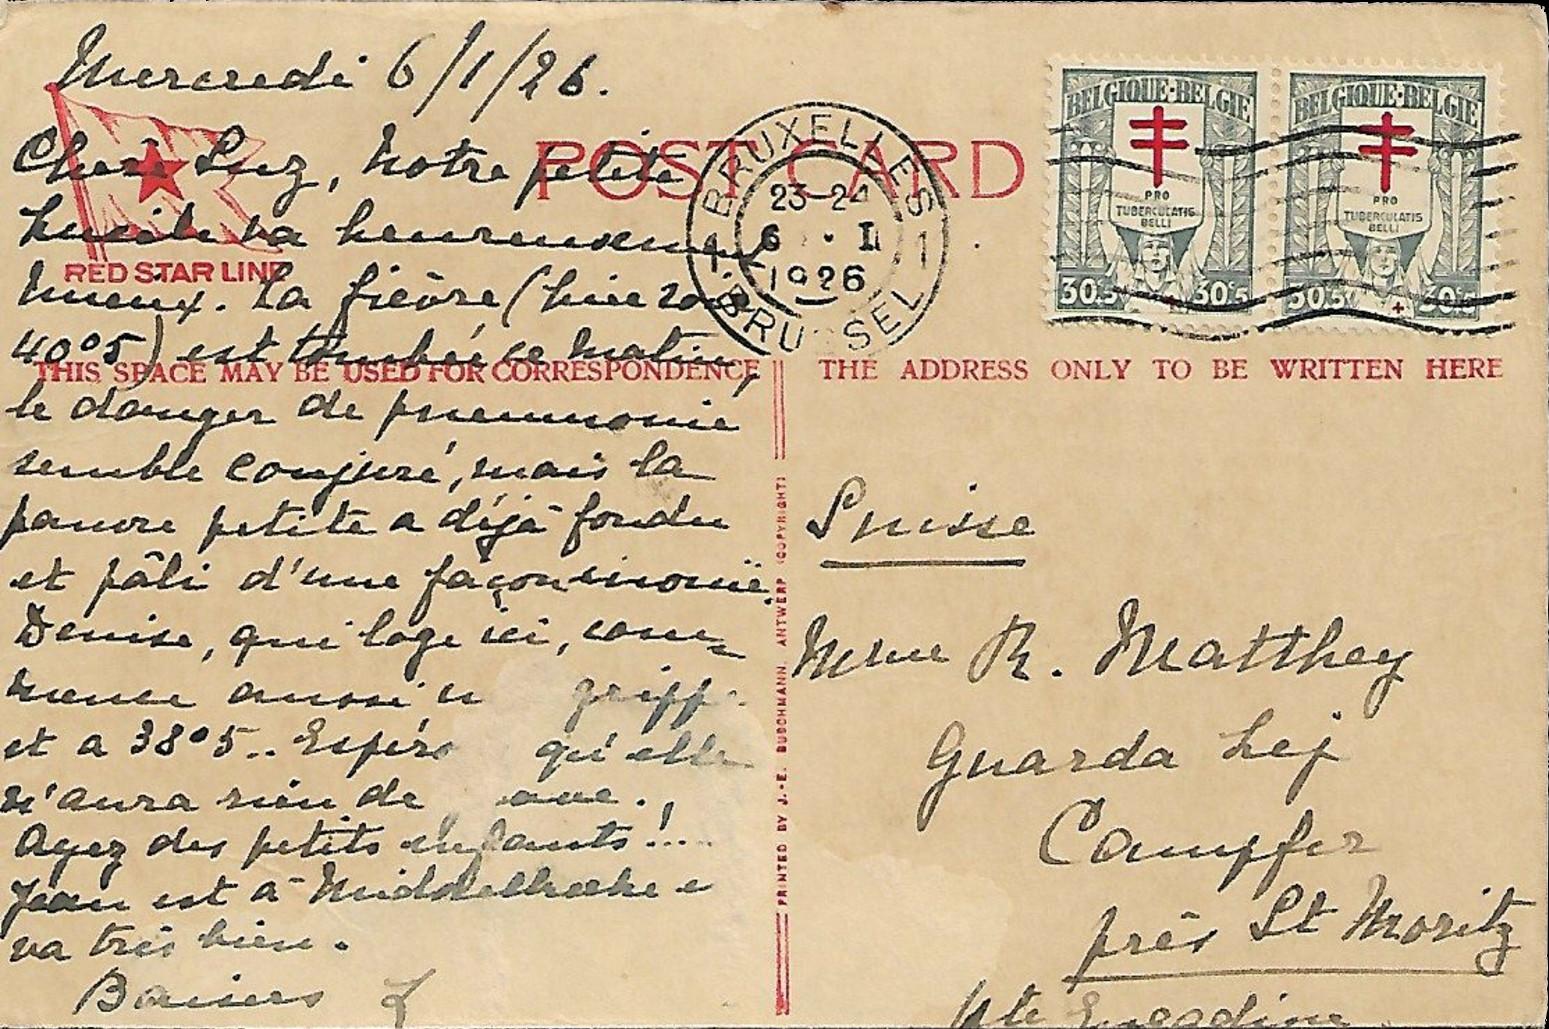 Mercredi 6/1/26.
Chère Luz, Notre petite
Lucile va heureusement
mieux. La fièvre (hier soir
40°5) est tombée ce matin,
le danger de pneumonie
semble conjuré, mais la
pauvre petite a déjà fondu
et pâli d'une façon inouïe.
Denise, qui loge ici, com=
mence aussi u gripp
et a 38°5.. Espéro qu'elle
n'aura rien de
Ayez des petits enfants!....
Jean est à Middelkerke e
va très bien.
Baisers L
RED STAR LINE
POST CARD
THIS SPACE MAY BE USED FOR CORRESPONDENCE
THE ADDRESS ONLY TO BE WRITTEN HERE
PRINTED BY J.-E. BUSCHMANN. ANTWERP (COPYRIGHT)
1 BRUXELLES 1
23-24
6 · I
1926
BRUSSEL
BELGIQUE·BELGIE
PRO
TUBERCULATIS
BELLI
30c5 30c5
BELGIQUE·BELGIE
PRO
TUBERCULATIS
BELLI
30c5 30c5
Suisse
Mme R. Matthey
Guarda Lej
Campfer
près St Moritz
Hte Engadine